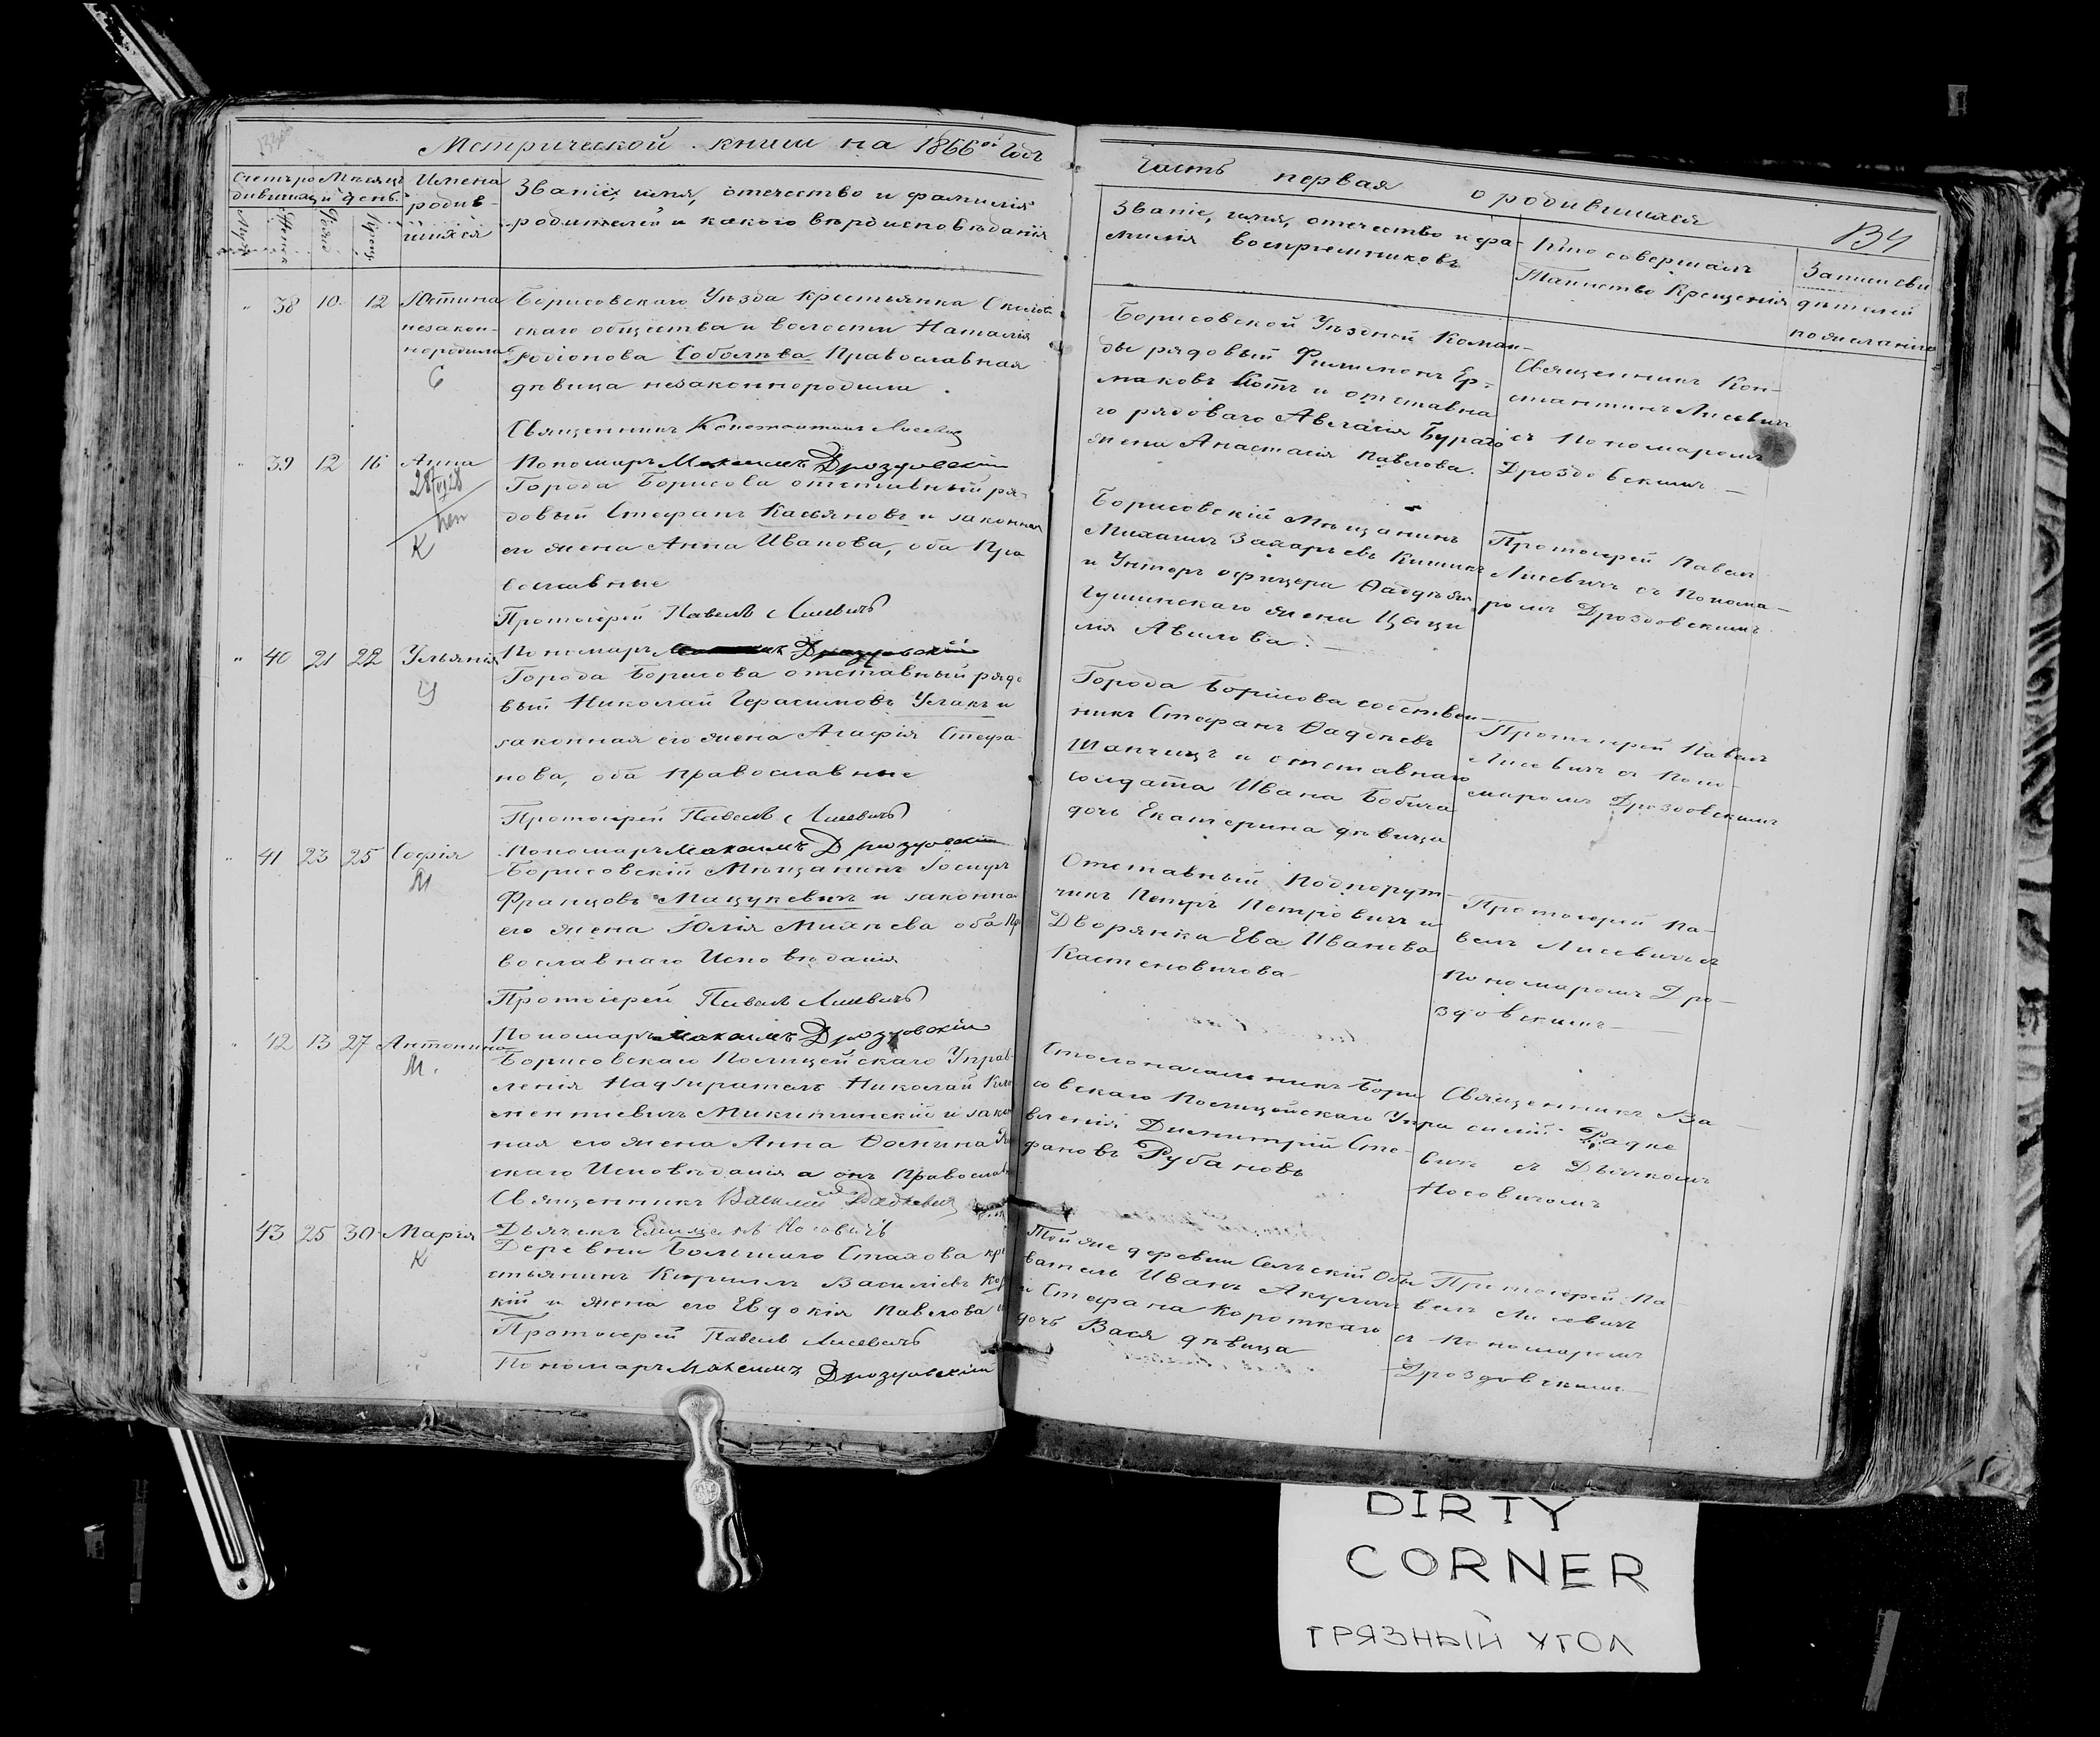 Метрической книги на 1866ой Годъ
Счетъ ро
дившихся
Мѣсяцъ
и день
Имена
родив-
шихся
Званіе, имя, отечество и фамилія
родителей и какого вѣроисповѣданія
38 10 12 Юстина
незакон-
норожден
С
Борисовскаго Уѣзда крестьянка
скаго общества и волости Наталія
Родіонова Соболѣва Православная
дѣвица незаконнородила
Священникъ Константинъ Лисевичъ
Пономаръ Максимъ Дроздовскій
39 12 16 Анна
К
Города Борисова отставный ря-
довый Стефанъ Касьяновъ и законная
его жена Анна Иванова, оба Пра
вославные
Протоіерей Павелъ Лисевичъ
Пономаръ Дроздовскій
40 21 22 Ульянія
У
Города Борисова отставный рядо
вый Николай Герасимовъ Усакъ и
законная его жена Агафія Стефа
нова, оба православные
Протоіерей Павелъ Лисевичъ
Пономаръ Максимъ Дроздовскій
41 23 25 Софія
М
Борисовскій Мѣщанинъ Госифъ
Францовъ Мацукевичъ и законная
его жена Юлія Михѣева оба Пра
вославнаго Исповѣданія
Протоіерей Павелъ Лисевичъ
Пономаръ Максимъ Дроздовскій
42 13 27 Антонина
М.
Борисовскаго Полицейскаго Управ-
ленія Надзиратель Николай Кле
ментіевичъ Микитинскій и закон
ная его жена Анна Фомина
скаго Исповѣданія а онъ Православн
Священникъ Василій Радкевичъ
Дьячекъ Носовичъ
43 25 30 Марія
К
Деревни Большаго Стахова кре
стьянинъ Кириллъ Василіевъ Кор
кій и жена его Евдокія Павлова
Протоіерей Павелъ Лисевичъ
Пономаръ Максимъ Дроздовскій
Часть первая о родившихся
134
Званіе, имя, отечество и фа-
милія воспріемниковъ
Кто совершалъ
Таинство Крещенія
дѣтелей
по желанію
Борисовской Уѣздной Коман-
ды рядовый Филимонъ Ер-
маковъ Котъ и отставна
го рядоваго
жена Анастасія Павлова.
Священникъ Кон-
стантинъ Лисевичъ
съ Пономаромъ
Дроздовскимъ
Борисовскій Мѣщанинъ
Михаилъ Захарьевъ
и Унтеръ офицера
жена
Протоіерей Павелъ
Лисевичъ съ Понома-
ромъ Дроздовскимъ
Города Борисова собствен-
никъ Стефанъ Фадѣевъ
Шапчицъ и отставнаго
солдата Ивана Бобича
дочь Екатерина дѣвица
Протоіерей Павелъ
Лисевичъ съ Поно-
маромъ Дроздовскимъ
Отставный Подпорут-
чикъ Петръ Петровичъ и
Дворянка Ева Иванова
Кастеновичова
Протоіерей Па-
велъ Лисевичъ съ
Пономаромъ Дро-
здовскимъ
Столоначальникъ Бори
совскаго Полицейскаго Упра
вленія Димитрій Сте-
фановъ Рубановъ
Священникъ Ва-
силій Радке
вичъ съ Дьячкомъ
Носовичомъ
Той же деревни Сельскій Обы
ватель Иванъ Акулич
и Стефана Короткаго
дочь Вася дѣвица
Протоіерей Па
велъ Лисевичъ
съ Пономаромъ
Дроздовскимъ
DIRTY
CORNER
ГРЯЗНЫЙ УГОЛ